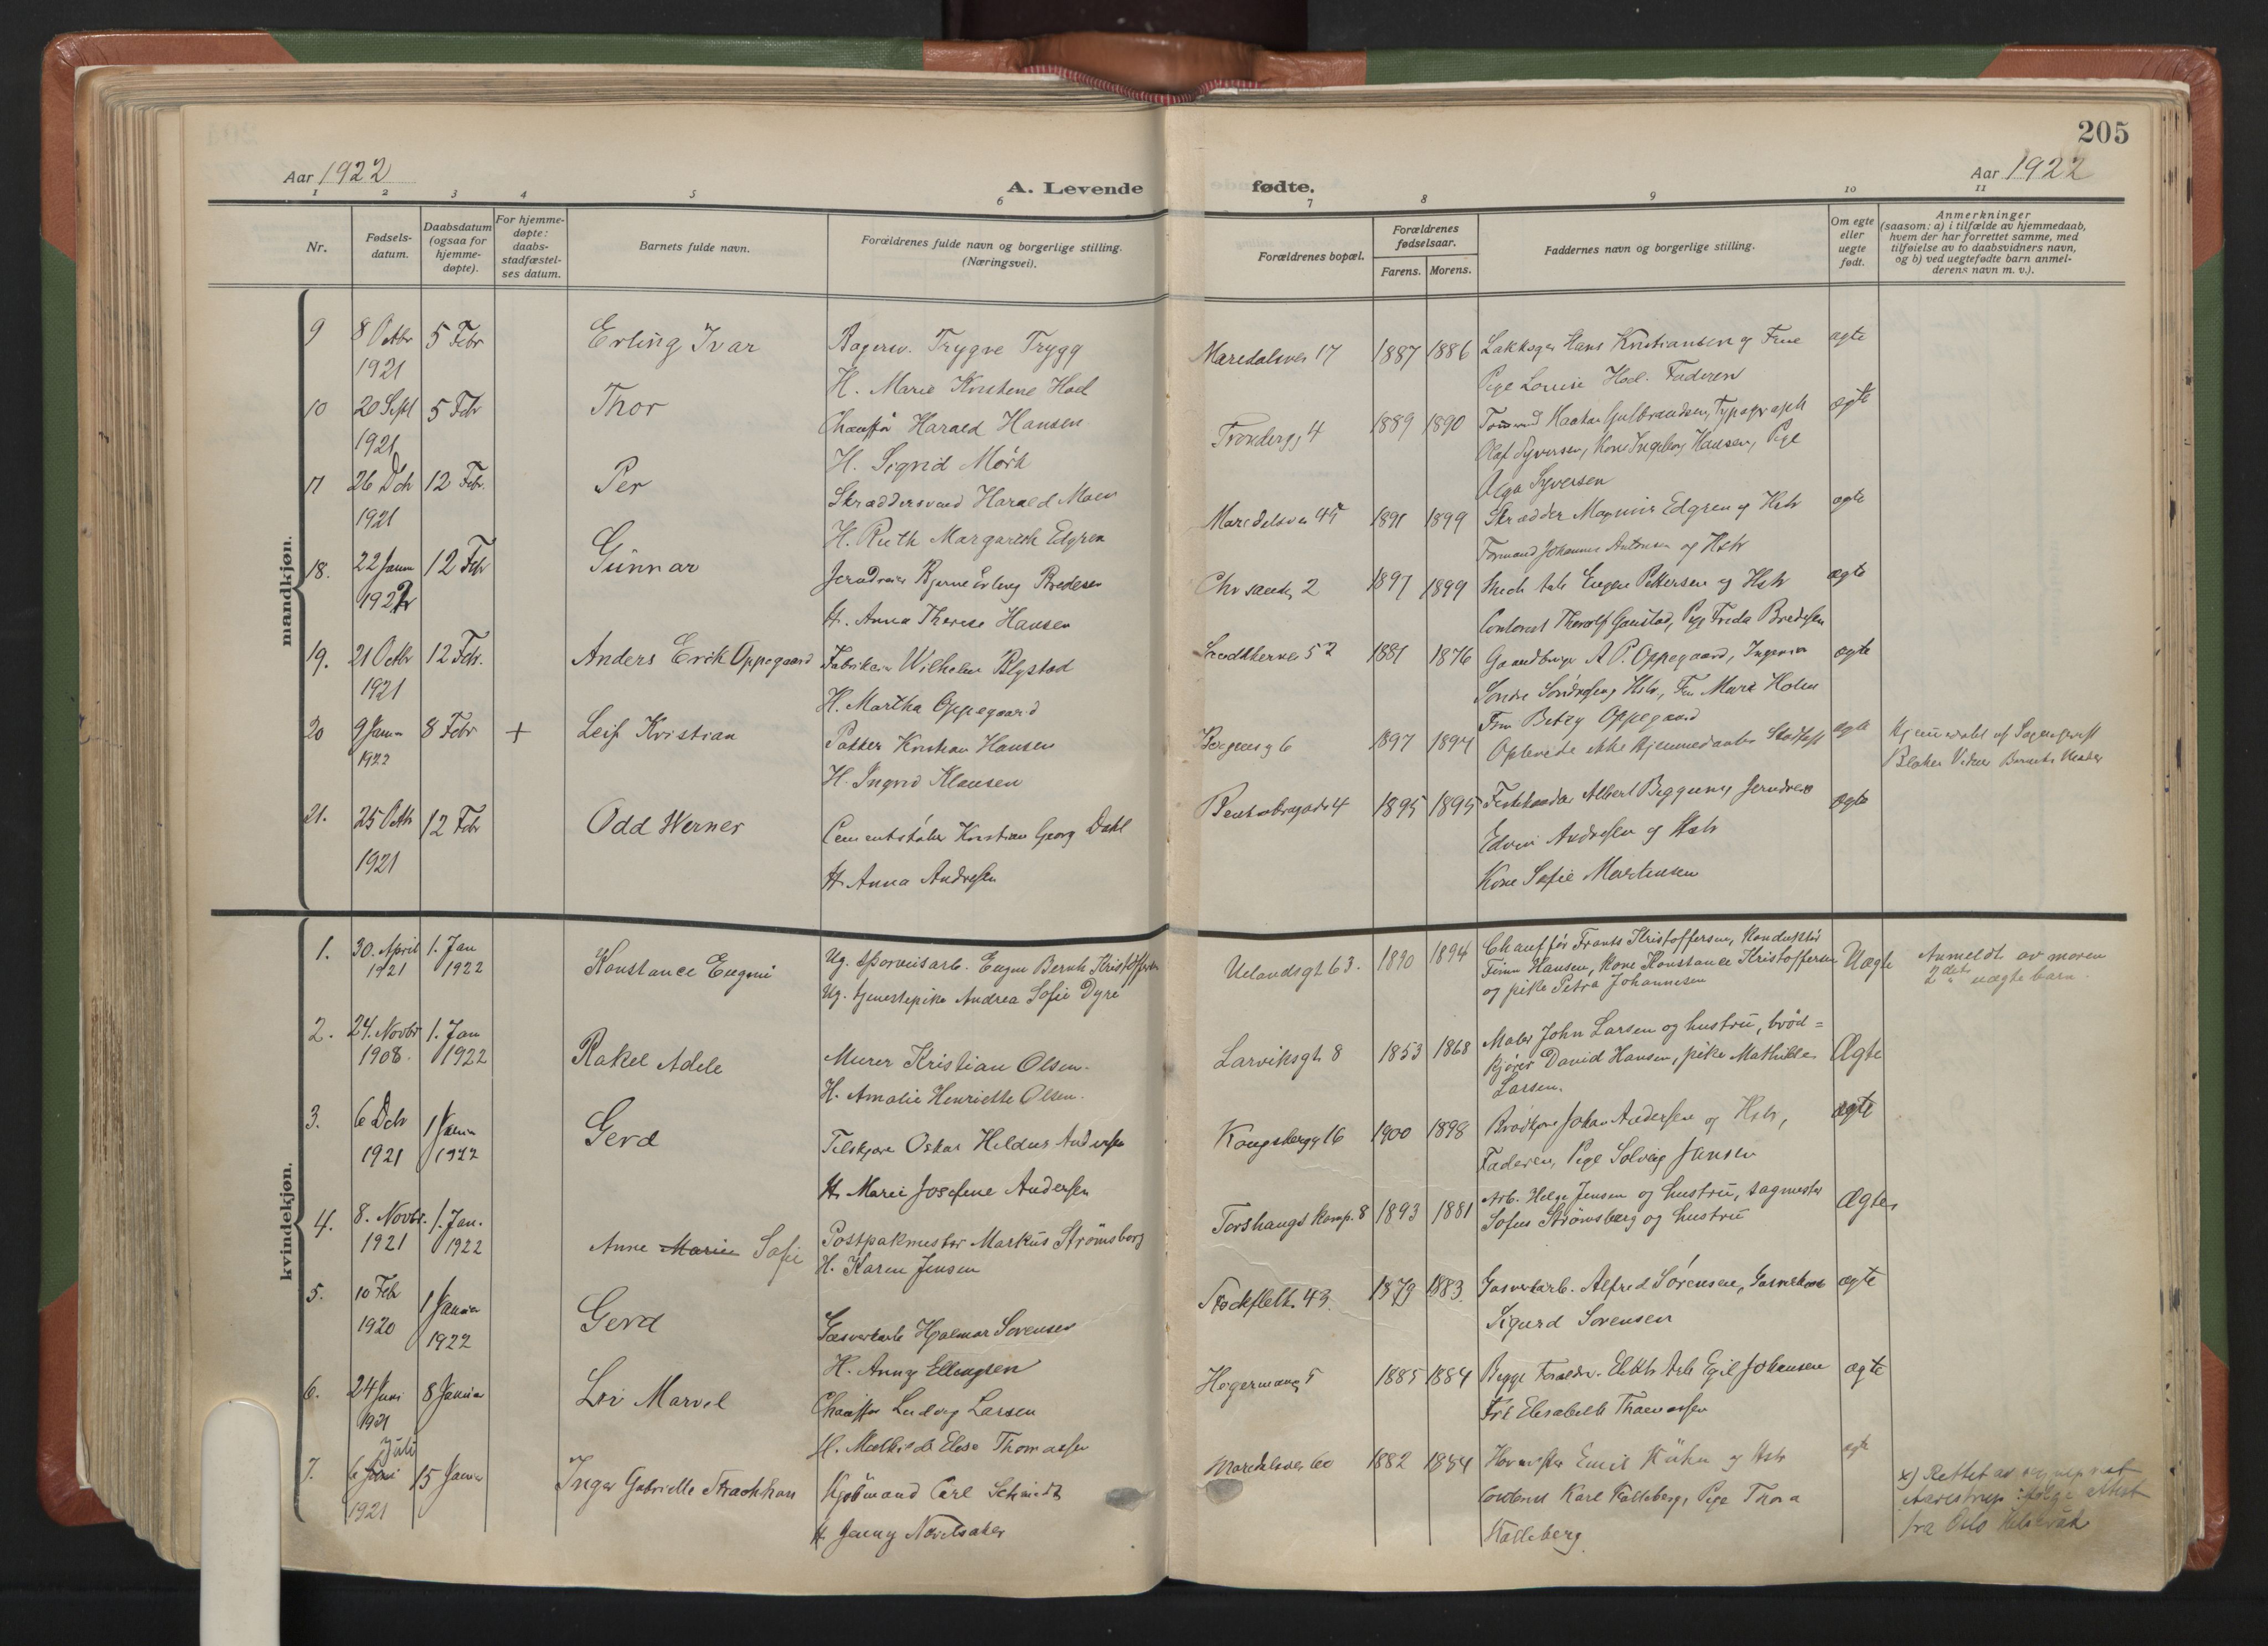 205
Aar 1922
Aar 1922
A. Levende fødte.
1 2 3 4 5 6 7 8 9 10 11
Nr.
Fødsels-
datum.
Daabsdatum
(ogsaa for
hjemme-
døpte).
For hjemme-
døpte:
daabs-
stadfæstel-
ses datum.
Barnets fulde navn.
Forældrenes fulde navn og borgerlige stilling.
(Næringsvei).
Forældrenes bopæl.
Forældrenes
fødselsaar.
Farens. Morens.
Faddernes navn og borgerlige stilling.
Om egte
eller
uegte
født.
Anmerkninger
(saasom: a) i tilfælde av hjemmedaab,
hvem der har forrettet samme, med
tilføielse av to daabsvidners navn,
og b) ved uegtefødte barn anmel-
derens navn m. v.).
mandkjøn.
9 8 Octbr 5 Febr Erling Ivar Trygve Trygg Maridalsvei 17 1887 1886 Hans Kristiansen og Frue ægte
1921 H. Marie Kristine Hoel Pige Louise Hoel. Faderen
10 20 Sept 5 Febr Thor Chauffør Harald Hansen Tronderg 4 1889 1890 Haakon Gulbrandsen, Typograph ægte
1921 H. Sigrid Mørk Olaf Syversen, Kone Ingeborg Hansen, Pige
Olga Syversen
17 26 Dcb 12 Febr. Per Skræddersvend Harald Moen Maridalsvei 45 1891 1899 Skrædder Magnus Edgren og Hstr ægte
1921 H. Ruth Margareth Edgren Formand Johannes Antonsen og Hstr
18. 22 Januar 12 Febr Gunnar Jerndreier Bjarne Erling Bredesen Chr sandg 2 1897 1899 Eugen Pettersen og Hstr ægte
1922 H. Anna Therese Hansen Contorist Thoralf Gaustad, Pige Freda Bredesen
19. 21 Octbr 12 Febr. Anders Erik Oppegaard Fabrikeier Wilhelm Blystad 52 1881 1876 Gaardbruger A P. Oppegaard, Ingeniør ægte
1921 H. Martha Oppegaard Hstr, Fru Marie Holm
Fru Betzy Oppegaard
20 9 Januar 8 Febr + Leif Kristian Pakker Kristian Hansen Bergensg 6 1897 1894 Oplevede ikke Hjemmedaabs Stadfest ægte
1922 H. Ingrid Klausen
21. 25 Octbr 12 Febr Odd Werner Cementstøber Kristian Georg Dahl Bentsebrogade 4 1895 1895 Albert Jerndreier ægte
1921 H. Anna Andresen Edvin Andresen og Hstr
Kone Sofie Martinsen
kvindekjøn.
1. 30. April 1. Jan Konstance Eugeni Ug. sporveisarb. Eugen Bernh Kristoffersen Uelandsgt. 63. 1890 1894 Chauffør Frants Kristoffersen, Konduktør Uægte Anmeldt av moren
1921 1922 Ug. tjenestepike Andrea Sofie Dyre Finn Hansen, Kone Konstance Kristoffersen 2det uægte barn.
og pike Petra Johannesen
2. 24. Novbr 1. Jan Rakel Adele Murer Kristian Olsen. Larviksgt. 8 1853 1868 Maler John Larsen og hustru, brød= Ægte
1908. 1922 H. Amalie Henriette Olsen. kjører David Hansen, pike Mathilde
Larsen.
3. 6 Dcbr 1 Januar Gerd Oskar Hildur Andersen Kongsbergg 16 1900 1898 Brødkjører Johan Andersen og Hstr, ægte
1921 1922 H. Marie Josefine Andersen Faderen, Pige Solveig Jansen
4. 8. Novbr. 1. Jan. Anne Marie Sofie Postpakmester Markus Strømsborg Torshaugs kamp. 8 1893 1881 Arb. Helge Jensen og hustru, sagmester Ægte
1921 1922 H. Karen Jensen Sofus Strømsberg og hustru
5. 10 Febr 1 Januar Gerd Gasverkarb Hjalmar Sorensen Stockfleth. 43. 1879 1883. Gasverkarb. Alfred Sørensen, ægte
1920 1922 H. Anny Ellingsen Sigurd Sorensen
6. 24 Juni 8 Januar Liv Marvel Chauffør Ludvig Larsen Hegermanng 5 1885 1884 Begge Forældre. Elektr Arb Egil Johansen ægte
1921 H. Mathilde Elise Thomassen Frk Elisabeth Thomassen
7. 6 Juni Juli 15 Januar Inger Gabrielle Kjøbmand Carl Schmidt Maridalsvei 60 1882 1884 Emil Kühn og Hstr ægte x) Rettet av
1921 H. Jenny Contorist Karl Kalleberg, Pige Thora
Kalleberg. fra Oslo